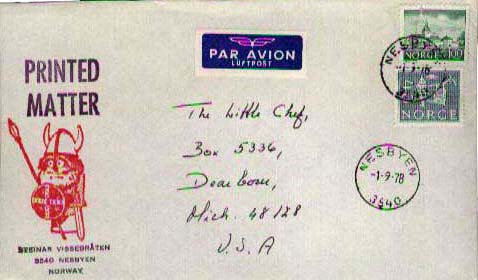 PRINTED
MATTER
PAR AVION
LUFTPOST
NORGE 100
NESBYEN
-1-9-78
3540
NORGE
The Little Chef,
Box 5336,
Dearborn,
Mich. 48128
U.S.A
NESBYEN
-1-9-78
3540
3540 NESBYEN
NORWAY